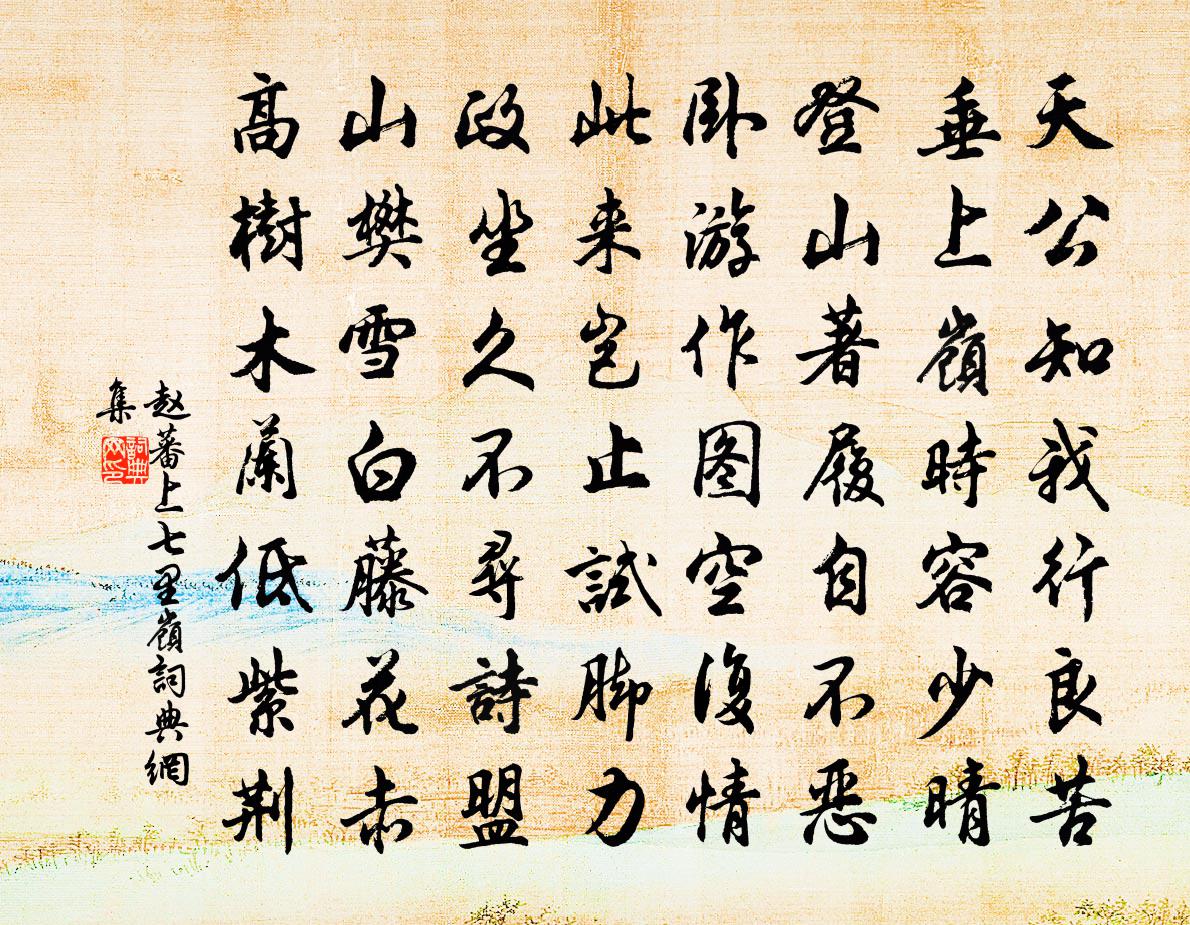 天公知我行良苦
垂上嶺時容少晴
登山著履自不恶
卧游作图空復情
此来岂止試脚力
政坐久不尋詩盟
山樊雪白藤花赤
高樹木蘭低紫荆
赵蕃上七里嶺詞典網
集
詞典
网印